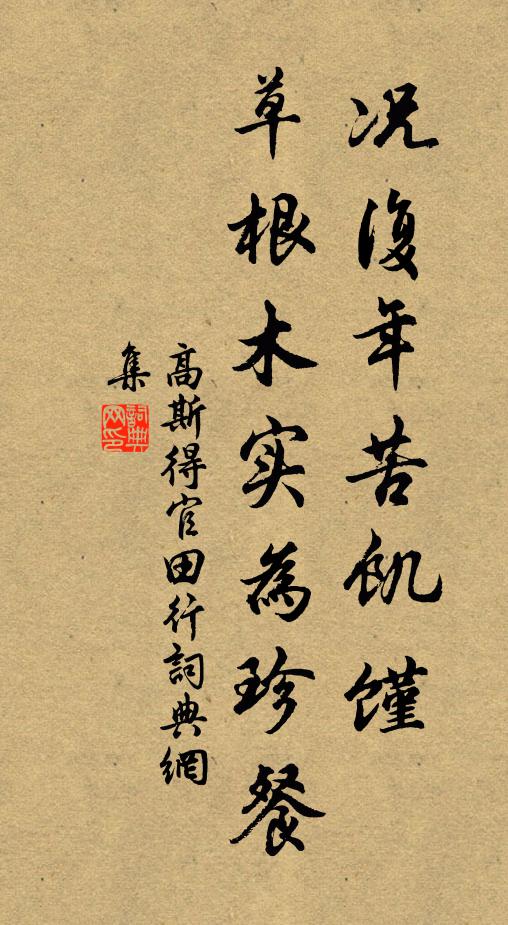 况復年苦飢饉
草根木实為珍餐
高斯得官田行詞典網
集
詞典网印